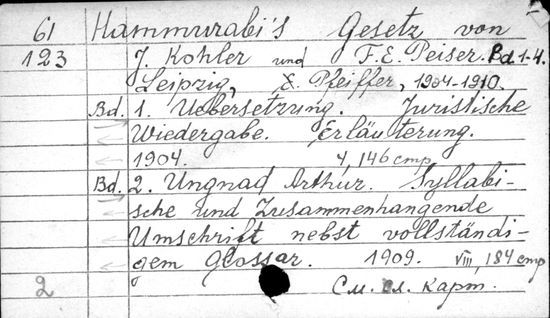 61 Hammurabi's Gesetz von
123 J. Kohler und F.E. Peiser. Bd. 1-4.
Leipzig, E. Pfeiffer, 1904-1910.
Bd. 1. Uebersetzung. Juristische
Wiedergabe. Erläuterung.
1904. 4, 146 стр.
Bd. 2. Ungnad Arthur. Syllabi-
sche und Zusammenhangende
Umschrift nebst vollständi-
gem Glossar. 1909. VIII, 184 стр
2 См. сл. карт.